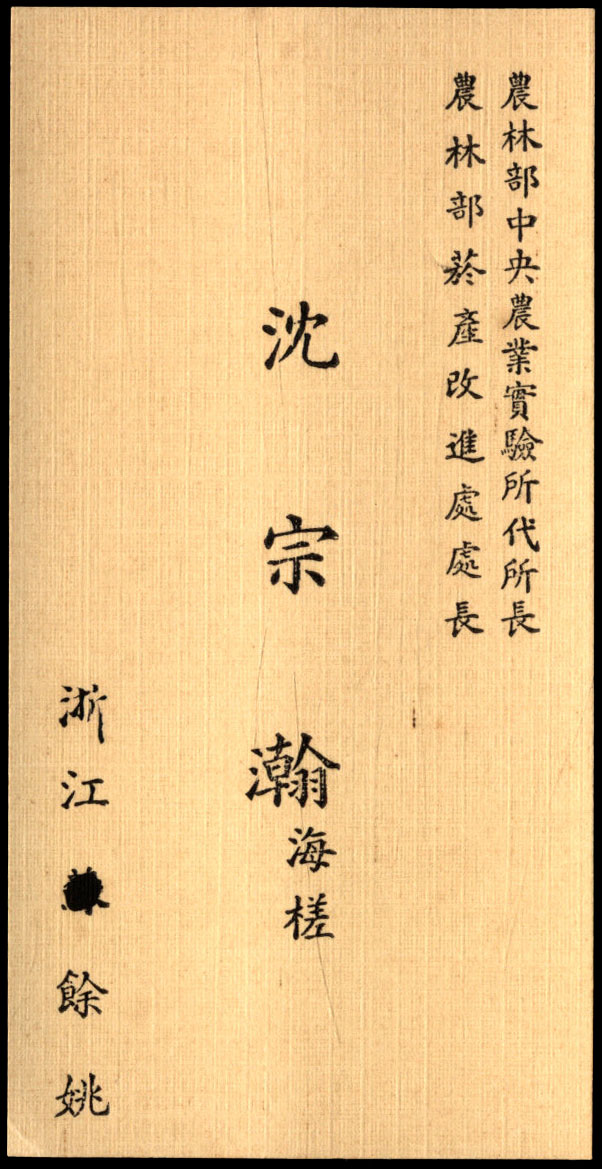 農林部中央農業實驗所代所長
農林部菸產改進處處長
沈宗瀚
海槎
浙江餘姚